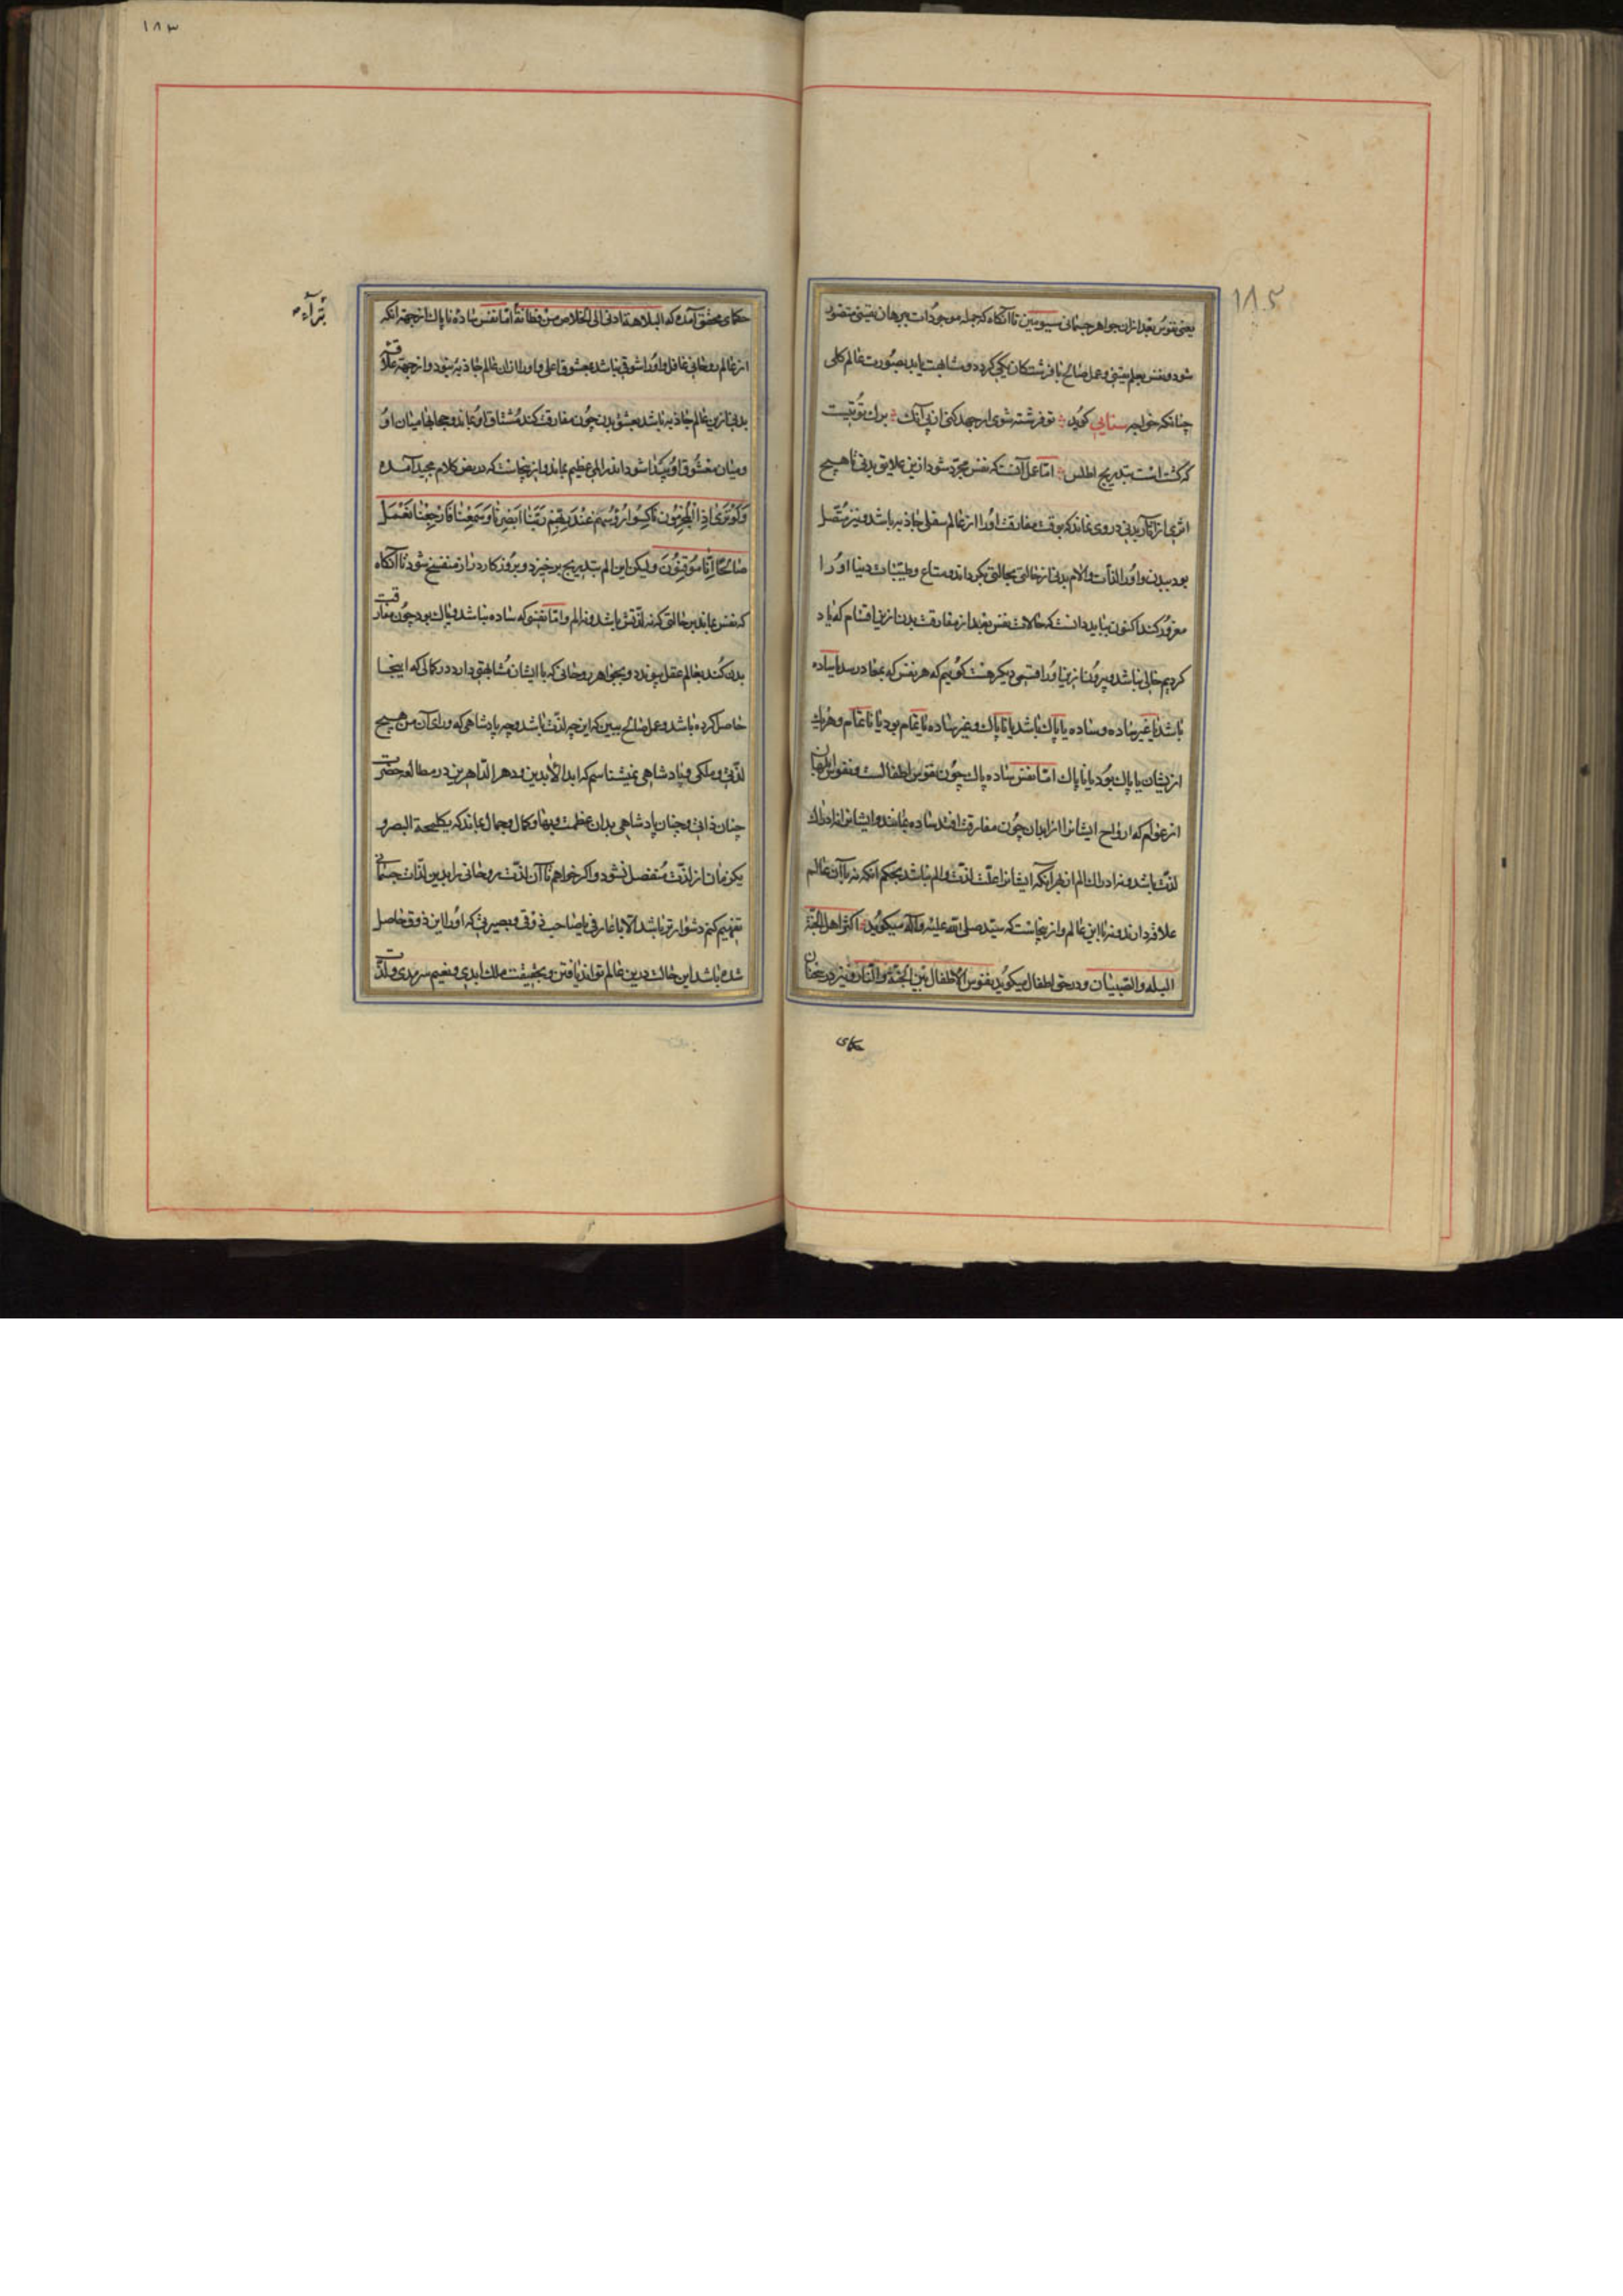 ١٨٢
یعنی نفوس بعد ازان جواهر جسمانی سیومین تا آنگاه که جمله موجودات ببرهان یقینی متصور
شود و نفس بعلم یقینی و عمل صالح با فرشتگان یکی گردد و مشابهت یابد بصورت عالم کلی
چنانکه خواجه سنایی گوید تو فرشته شوی ار جهد کنی از پی آنک برك توتست
که گشت است بتدریج اطلس اما عمل آنست که نفس مجرد شود ازین علایق بدنی تا هیچ
اثری از آثار بدنی در وی نماند که بوقت مفارقت او را از عالم سفلی جاذبه باشد و نیز متصل
بود ببدن و او را لذات و آلام بدنی از حالتی بحالتی بگرداند و متاع و طیبات دنیا او را
مغرور کند اکنون بباید دانست که حالات نفس بعد از مفارقت بدن ازین اقسام که یاد
کردیم خالی نباشد و بیرون ازینها و را قسمی دیگر هست گوییم که هر نفس که بمعاد رسد یا ساده
باشد یا غیر ساده و ساده یا پاك باشد یا ناپاك و غیر ساده یا تمام بود یا ناتمام و هر یك
ازیشان یا پاك بود یا ناپاك اما نفس ساده پاك چون نفوس اطفالست و نفوس ابلهان
از عوام که ارواح ایشانرا از ابدان چون مفارقت افتد ساده بمانند و ایشانرا نه ادراك
لذت باشد و نه ادراك الم از بهر آنکه ایشانرا علت لذت و الم نباشد بحکم آنکه نه با آن عالم
علاقه دارند و نه با این عالم و از اینجاست که سید صلی الله علیه و آله میگوید اکثر اهل الجنة
البله و الصبیان و در حق اطفال میگوید نفوس الاطفال بین الجنة و النار و نیز در سخنان
حکمای
١٨٣
حکمای محقق آمده که البلاهة ادنی الی الخلاص من فطانة اما نفس ساده ناپاك از جهة آنکه
از عالم روحانی غافل و او را شوقی نباشد بمعشوق اعلی و او را از ان عالم جاذبه نبود و از جهة علاقه
بدنی ازین عالم جاذبه باشد بعشق بدن چون مفارقت کند مشتاق او بماند و حجابها میان او
و میان معشوق او پیدا شود اندر المی عظیم بماند و از اینجاست که در بعض کلام مجید آمده
وَلَوْ تَرَىٰ إِذِ الْمُجْرِمُونَ نَاكِسُوا رُؤُسِهِمْ عِنْدَ رَبِّهِمْ رَبَّنَا أَبْصَرْنَا وَسَمِعْنَا فَارْجِعْنَا نَعْمَلْ
صَالِحًا إِنَّا مُوقِنُونَ ولیکن این الم بتدریج برخیزد و بروزگار دراز منفسخ شود تا آنگاه
که نفس بماند بر حالتی که نه لذتش باشد و نه الم و اما نفسی که ساده نباشد و پاك بود چون مفارقت
بدن کند بعالم عقل پیوندد و بجواهر روحانی که با ایشان مشابهتی دارد در کمالی که اینجا
حاصل کرده باشد و عمل صالح ببین که این چه لذت باشد و چه پادشاهی که ورای آن من هیچ
لذتی و ملکی و پادشاهی نمیشناسم که ابد الآبدین و دهر الداهرین در مطالعه حضرت
چنان ذاتی و چنان پادشاهی بدان عظمت و بها و کمال و جمال بماند که یکلمحة البصر و
یکزمان از لذت منفصل نشود و اگر خواهم تا آن لذت روحانی را بدین لذات جسمانی
تفهیم کنم دشوارتر باشد الا با عارفی یا صاحب ذوقی و بصیرتی که او را این ذوق حاصل
شده باشد این حالت درین عالم تواند یافتن و بحقیقت ملك ابدی و نعیم سرمدی و لذت